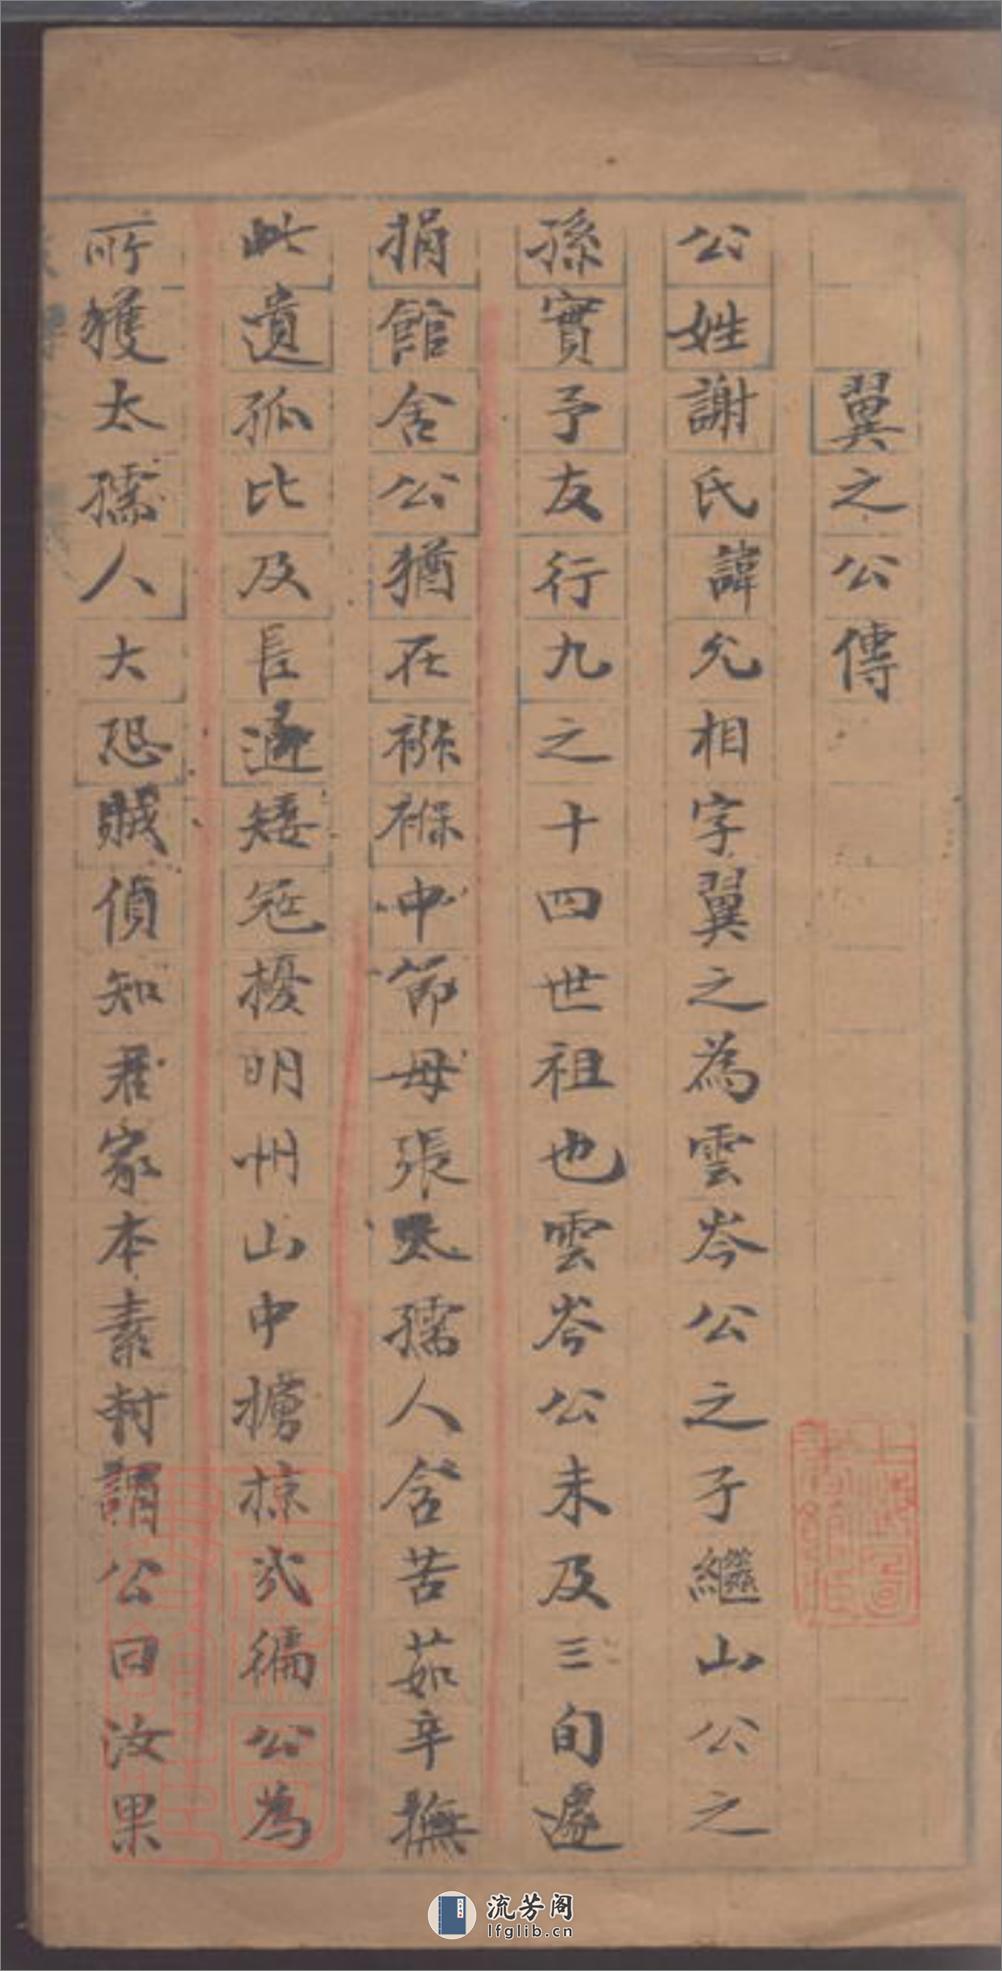 翼之公傳
公姓謝氏諱允相字翼之為雲岑公之子繼山公之
孫實予友行九之十四世祖也雲岑公未及三旬遽
捐館舍公猶在襁褓中節母張太孺人含苦茹辛撫
此遺孤比及長適矮寇擾明州山中擄掠式徧公為
所獲太孺人大恐賊偵知君家本素封謂公曰汝果
流芳阁
lfglib.cn